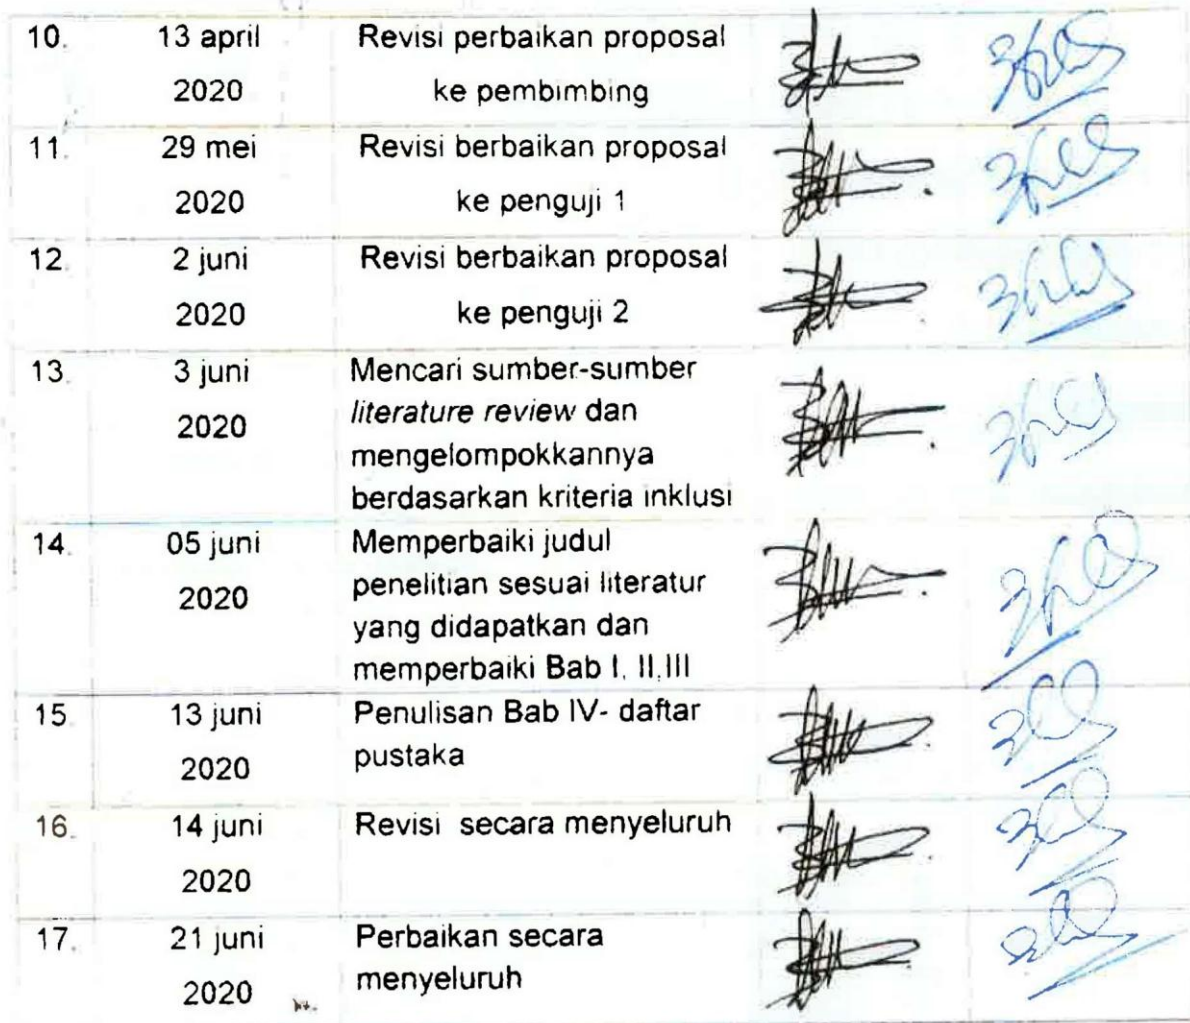 10. 13 april Revisi perbaikan proposal
2020 ke pembimbing
11. 29 mei Revisi berbaikan proposal
2020 ke penguji 1
12. 2 juni Revisi berbaikan proposal
2020 ke penguji 2
13. 3 juni Mencari sumber-sumber
2020 literature review dan
mengelompokkannya
berdasarkan kriteria inklusi
14. 05 juni Memperbaiki judul
2020 penelitian sesuai literatur
yang didapatkan dan
memperbaiki Bab I, II,III
15. 13 juni Penulisan Bab IV- daftar
2020 pustaka
16. 14 juni Revisi secara menyeluruh
2020
17. 21 juni Perbaikan secara
2020 menyeluruh